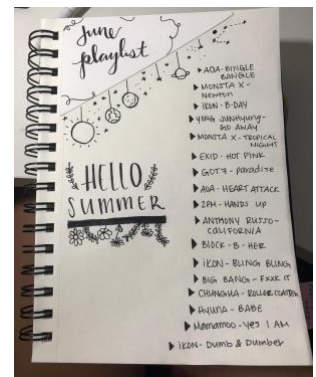 june
playlist
▶ AOA - BINGLE
BANGLE
▶ MONSTA X -
Newton
▶ IKON - B-DAY
▶ YONG JUNHYUNG -
GO AWAY
▶ MONSTA X - TROPICAL
NIGHT
▶ EXID - HOT PINK
▶ GOT7 - paradise
▶ AOA - HEART ATTACK
▶ 2PM - HANDS UP
▶ ANTHONY RUSSO -
CALIFORNIA
▶ BLOCK - B - HER
▶ iKON - BLING BLING
▶ BIG BANG - FXXK IT
▶ CHUNGHA - ROLLER COASTER
▶ Hyuna - BABE
▶ Mamamoo - Yes I AM
▶ iKON - Dumb & Dumber
HELLO
SUMMER